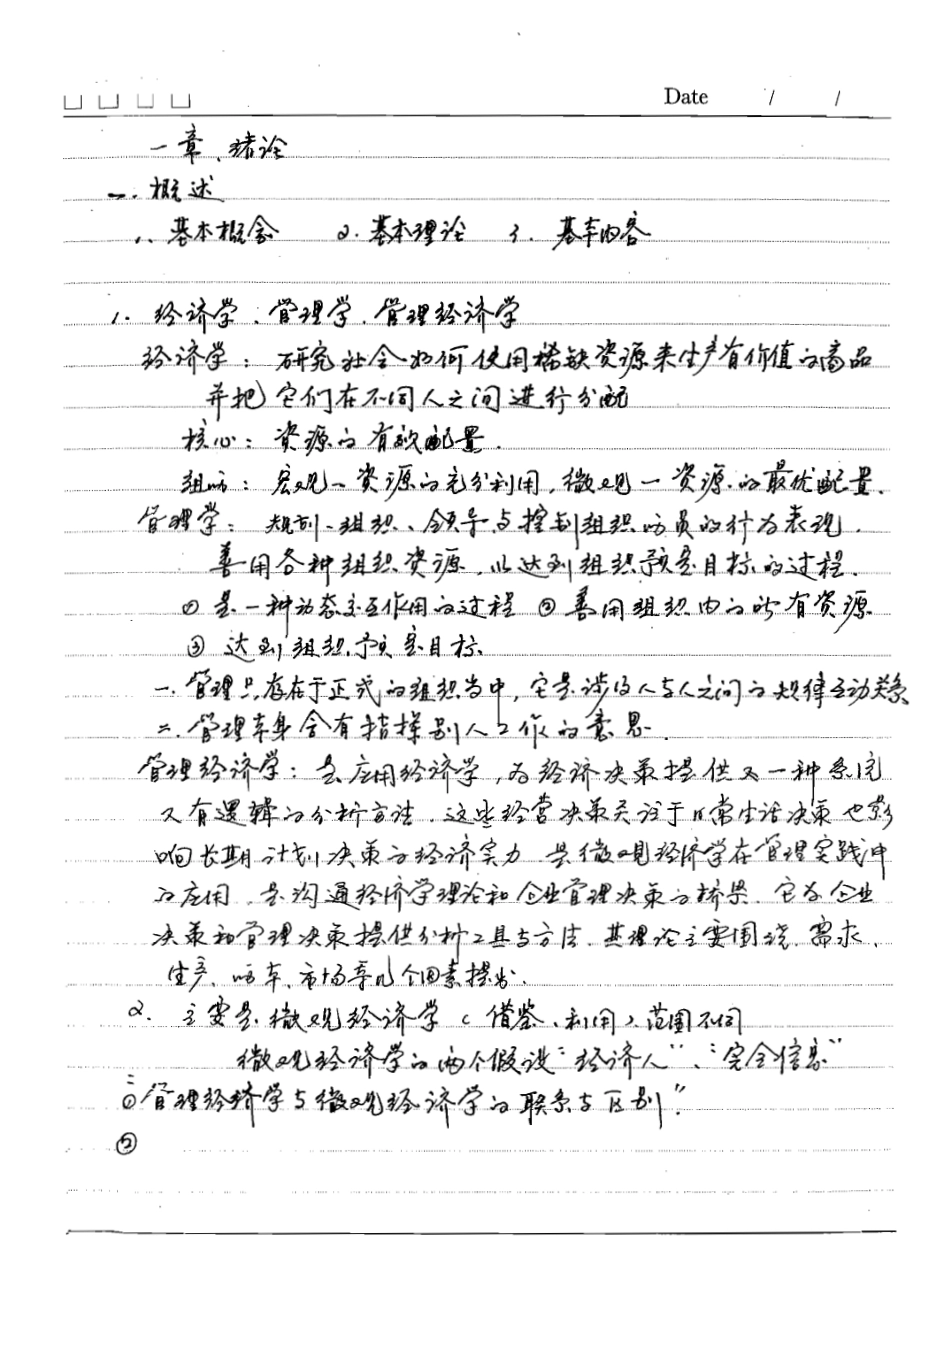 Date / /
一章、绪论
一.概述
1、基本概念 2.基本理论 3.基本内容
1.经济学、管理学、管理经济学
经济学：研究社会如何使用稀缺资源来生产有价值的商品
并把它们在不同人之间进行分配
核心：资源的有效配置.
宏观—资源的充分利用,微观—资源的最优配置.
管理学：规划、组织、领导与控制组织成员的行为表现.
善用各种组织资源,以达到组织预定目标的过程.
①是一种动态交互作用的过程 ②善用组织内的所有资源
③达到组织预定目标
一.管理只存在于正式的组织当中,它是涉及人与人之间的规律互动关系
二.管理本身含有指挥别人工作的意思.
管理经济学：是应用经济学,为经济决策提供了一种系统
又有逻辑的分析方法.这些经营决策关注于日常生活决策也影
响长期计划决策的经济实力 是微观经济学在管理实践中
的应用,是沟通经济学理论和企业管理决策的桥梁.它为企业
决策和管理决策提供分析工具与方法.其理论主要围绕.需求、
生产、成本、市场等几个因素提出.
2.主要是微观经济学(借鉴、利用)范围不同
微观经济学的两个假设“经济人”、“完全信息”
①管理经济学与微观经济学的联系与区别”.
②